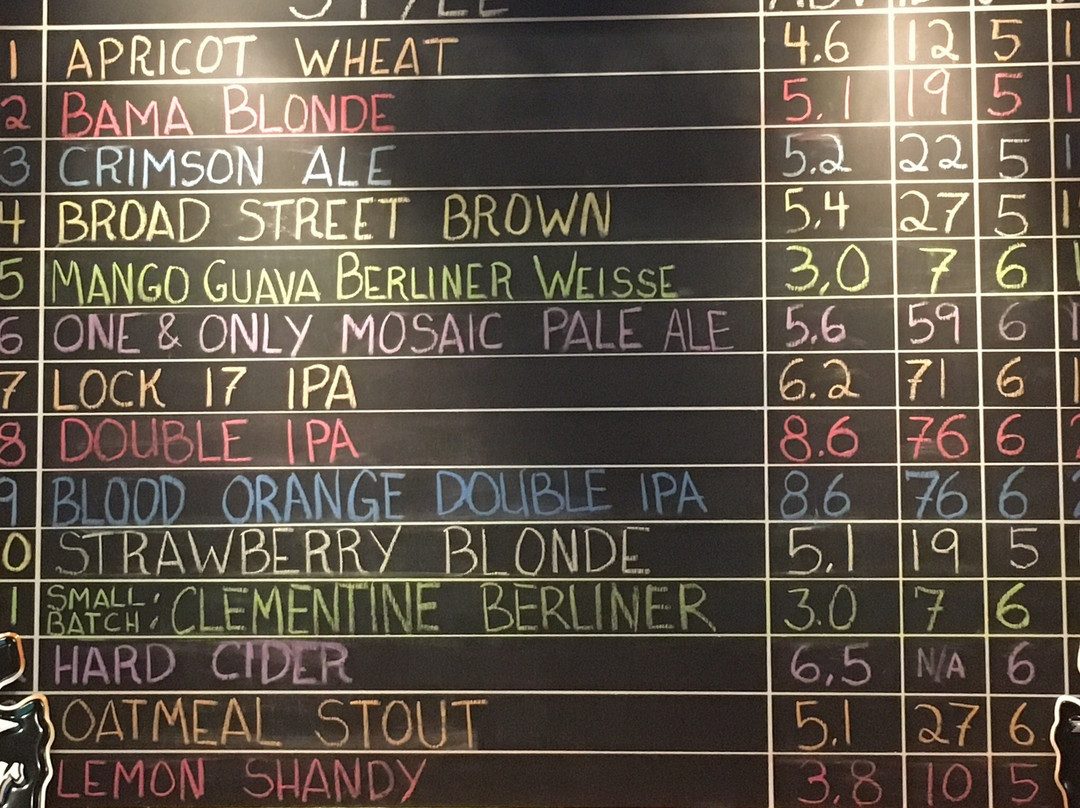 STYLE
1 APRICOT WHEAT 4.6 12 5
2 BAMA BLONDE 5.1 19 5
3 CRIMSON ALE 5.2 22 5
4 BROAD STREET BROWN 5.4 27 5
5 MANGO GUAVA BERLINER WEISSE 3.0 7 6
6 ONE & ONLY MOSAIC PALE ALE 5.6 59 6
7 LOCK 17 IPA 6.2 71 6
8 DOUBLE IPA 8.6 76 6
9 BLOOD ORANGE DOUBLE IPA 8.6 76 6
0 STRAWBERRY BLONDE 5.1 19 5
1 SMALL BATCH: CLEMENTINE BERLINER 3.0 7 6
HARD CIDER 6.5 N/A 6
OATMEAL STOUT 5.1 27 6
LEMON SHANDY 3.8 10 5